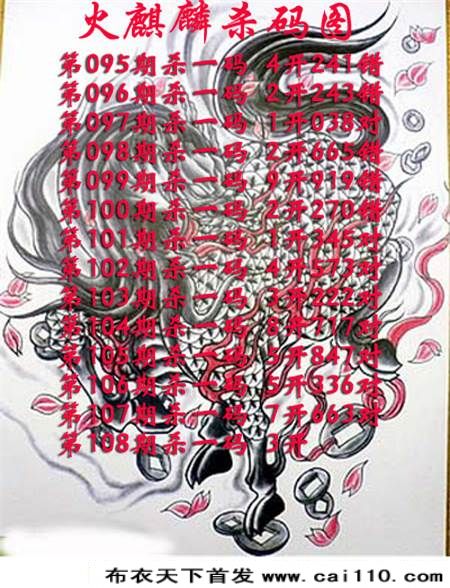 火麒麟杀码图
第095期杀一码 4开241错
第096期杀一码 2开243错
第097期杀一码 1开038对
第098期杀一码 2开665错
第099期杀一码 9开919错
第100期杀一码 2开270错
第101期杀一码 1开345对
第102期杀一码 4开573对
第103期杀一码 3开222对
第104期杀一码 8开717对
第105期杀一码 5开847对
第106期杀一码 5开336对
第107期杀一码 7开663对
第108期杀一码 3开
布衣天下首发 www.cai110.com